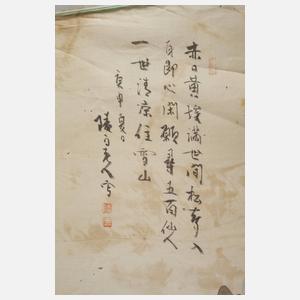 赤日黄埃滿世間松聲入
耳即心閑願尋五百仙人
一世清涼住雪山
庚申夏日
老人